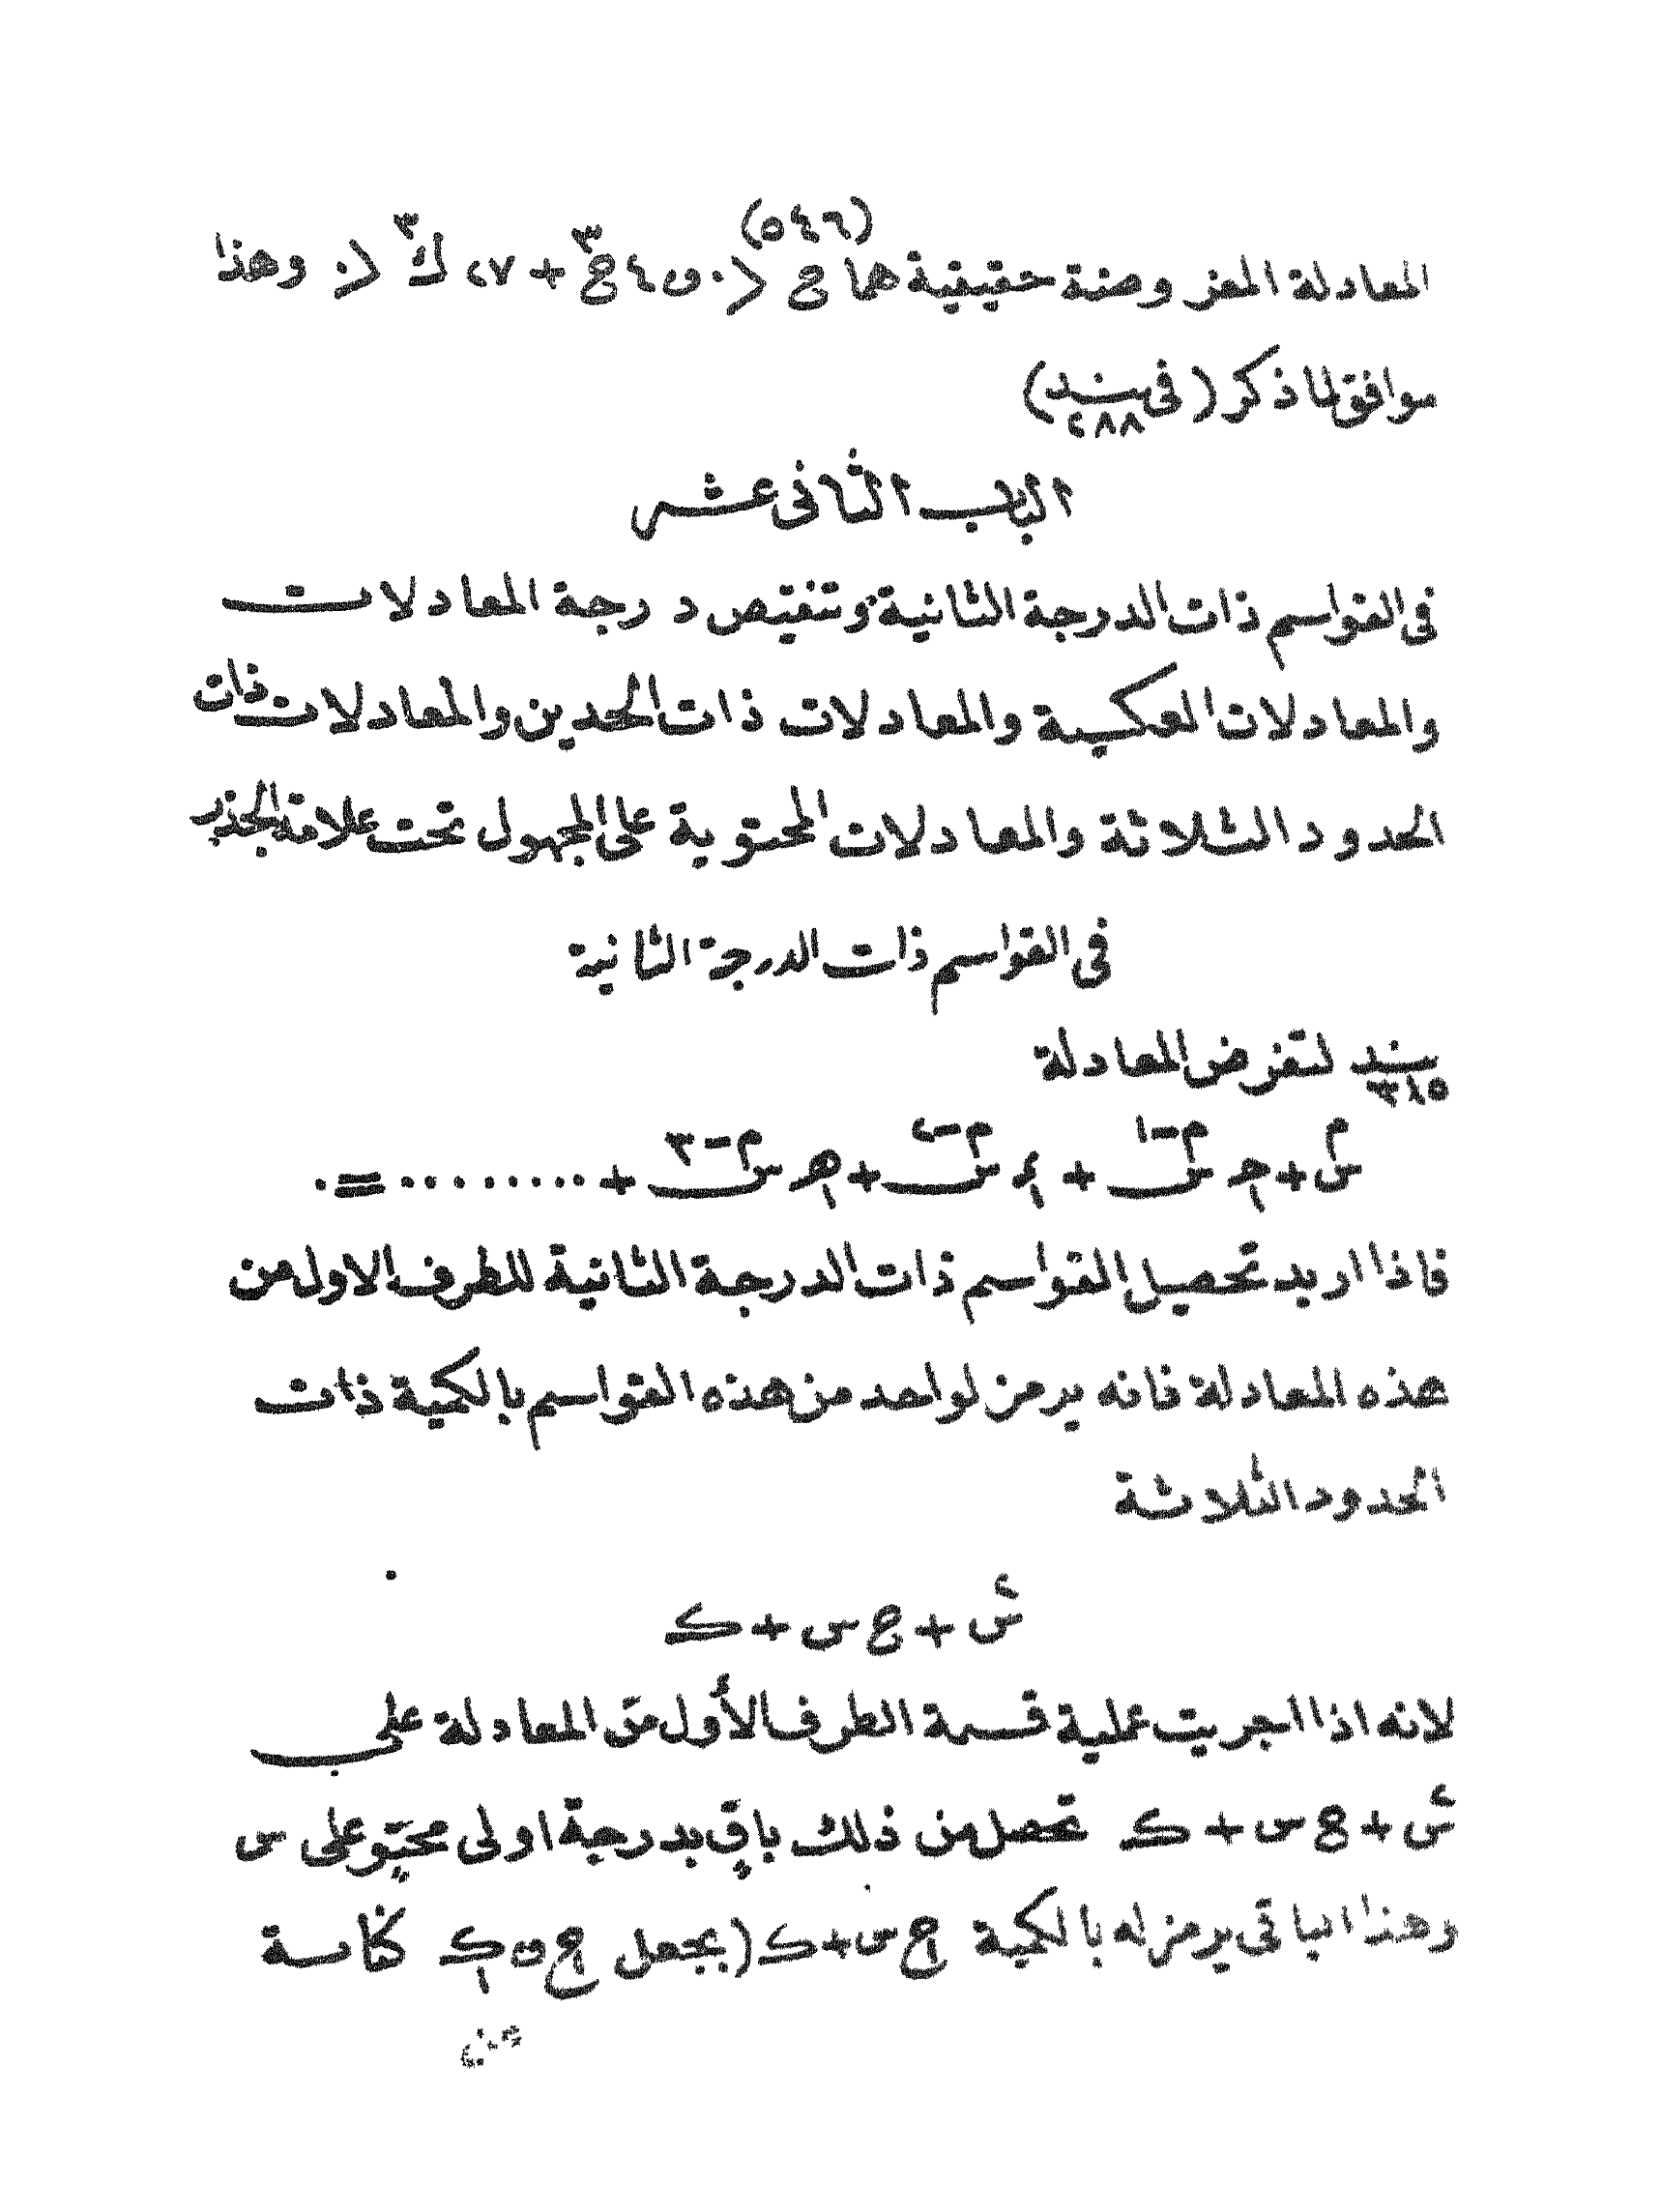 (٥٤٦)
المعادلة المفروضة حقيقية هما ع > ٠ و ٤ع^٣ + ٢٧ ك^٢ < ٠ وهذا
موافق لما ذكر (فى بند ٢٨٨)
الباب الثانى عشر
فى القواسم ذات الدرجة الثانية وتنقيص درجة المعادلات
والمعادلات العكسية والمعادلات ذات الحدين والمعادلات ذات
الحدود الثلاثة والمعادلات المحتوية على المجهول تحت علامة الجذر
فى القواسم ذات الدرجة الثانية
بند ٣٨٥ لتفرض المعادلة
س^م + حـ س^م-١ + س^م-٢ + هـ س^م-٣ + ......... = ٠
فاذا اريد تحصيل القواسم ذات الدرجة الثانية للطرف الاول من
هذه المعادلة فانه يرمز لواحد من هذه القواسم بالكمية ذات
الحدود الثلاثة
س^٢ + ع س + ك
لانه اذا اجريت عملية قسمة الطرف الأول من المعادلة على
س^٢ + ع س + ك تحصل من ذلك باقٍ بدرجة اولى محتوٍ على س
وهذا الباقى يرمز له بالكمية عَ س + ك (بجعل عَ و كَ كناسة